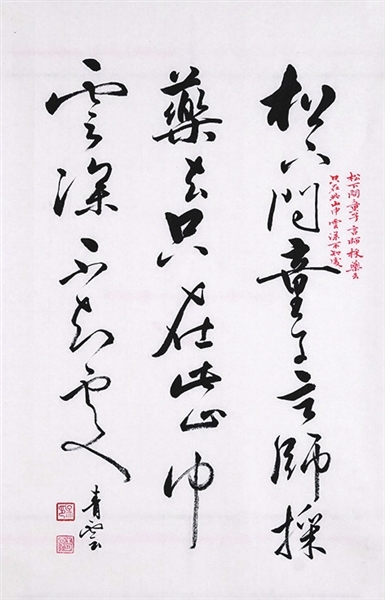 松下問童子言師採藥去
只在此山中雲深不知處
松下問童子言師採
藥去只在此山中
雲深不知處
青雲